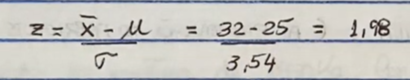 z = x̄ - μ / σ = 32-25 / 3,54 = 1,98